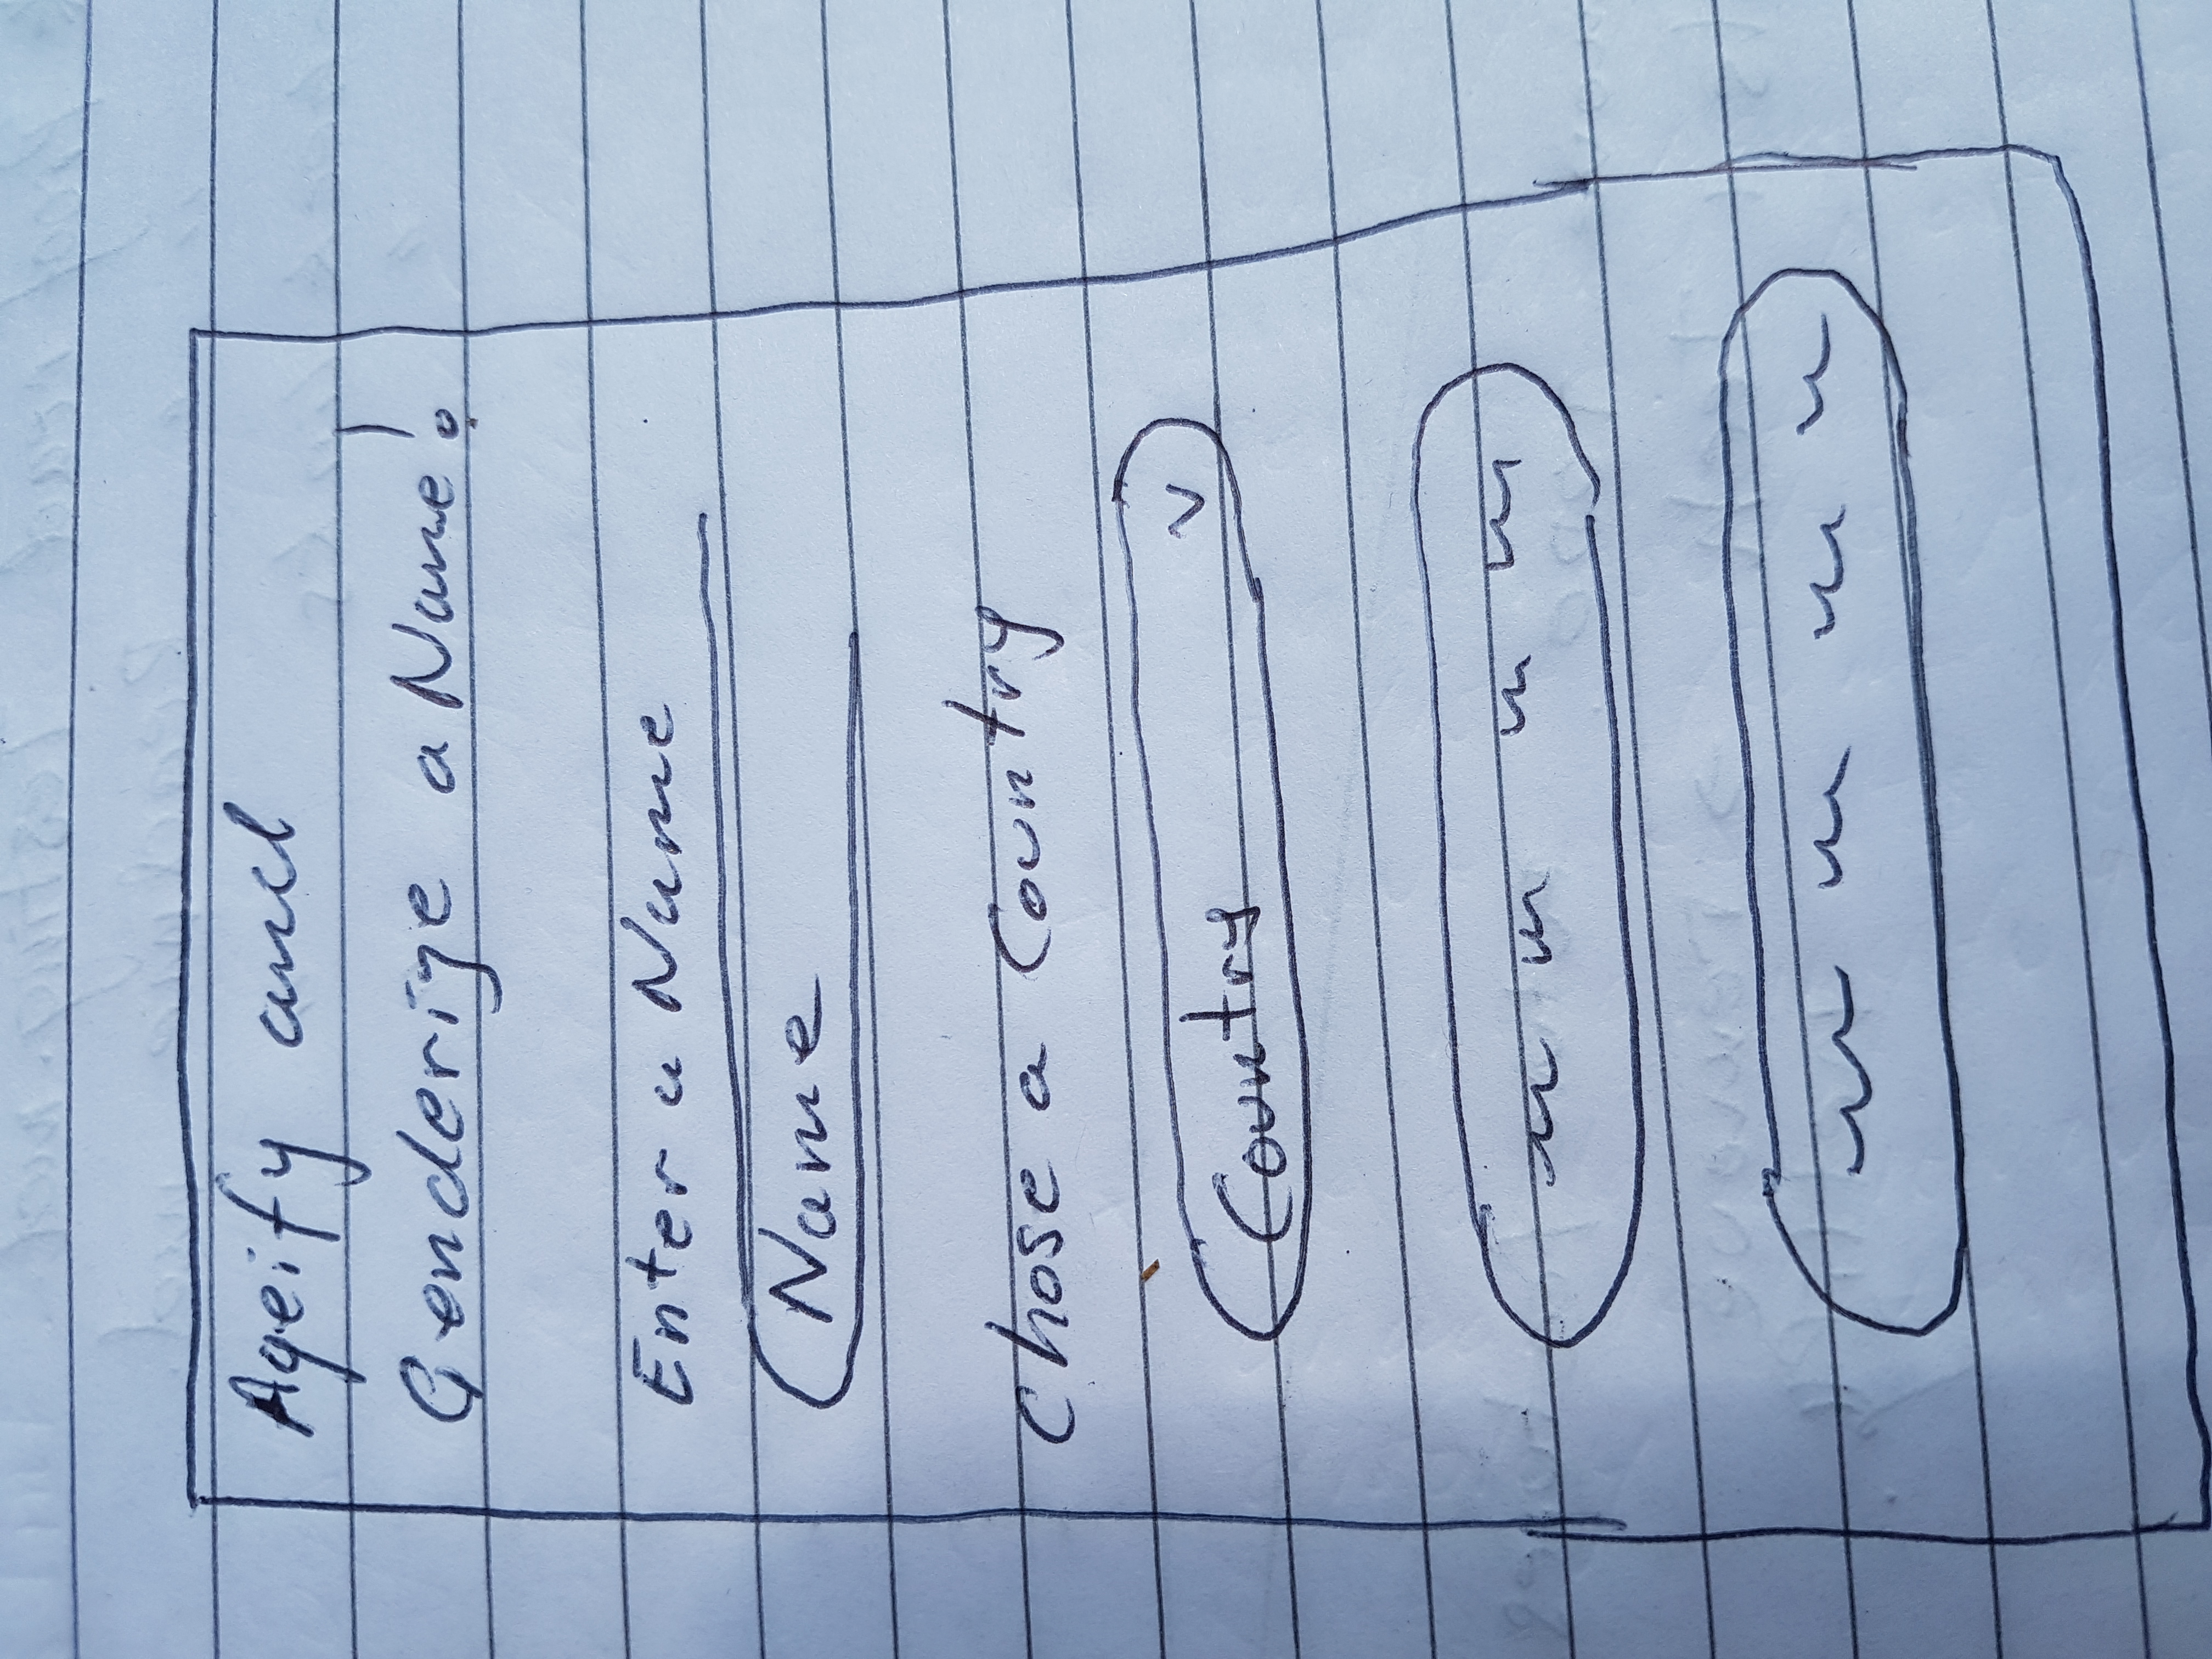 Ageify and
Genderize a Name!
Enter a Name
Name
Chose a Country
Country